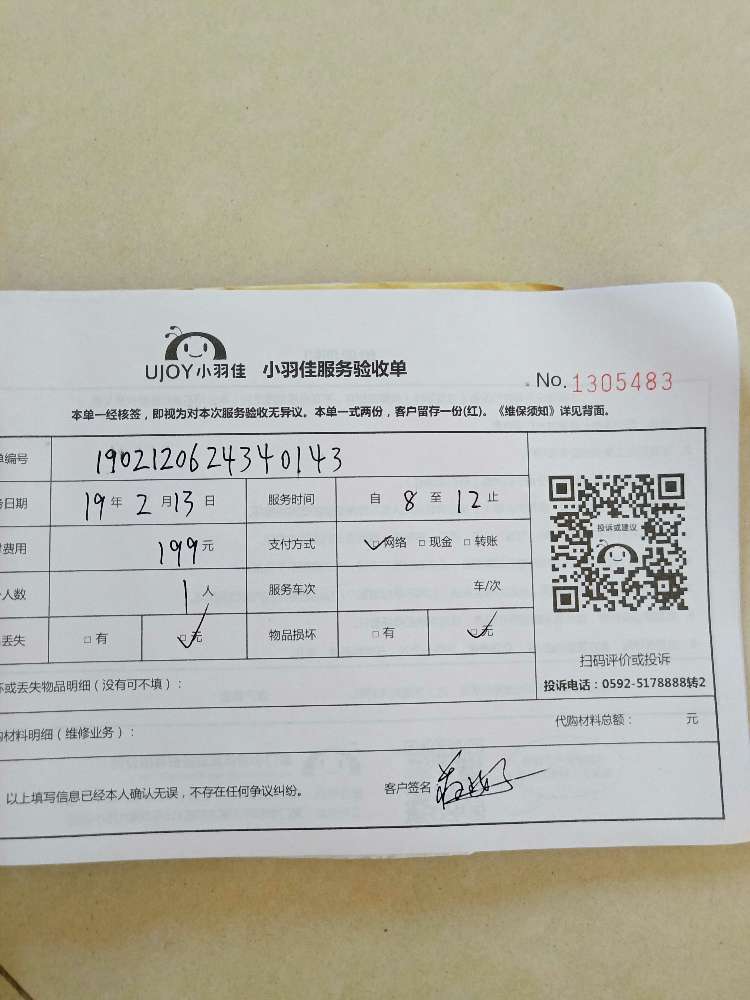 UJOY小羽佳 小羽佳服务验收单
No. 1305483
本单一经核签，即视为对本次服务验收无异议。本单一式两份，客户留存一份(红)。《维保须知》详见背面。
单编号 1902120624340143
务日期 19 年 2 月 13 日 服务时间 自 8 至 12 止
费用 199 元 支付方式 ☑网络 □现金 □转账
人数 1 人 服务车次 车/次
丢失 □有 ☑无 物品损坏 □有 ☑无
投诉或建议
扫码评价或投诉
投诉电话：0592-5178888转2
坏或丢失物品明细（没有可不填）：
购材料明细（维修业务）： 代购材料总额： 元
以上填写信息已经本人确认无误，不存在任何争议纠纷。 客户签名